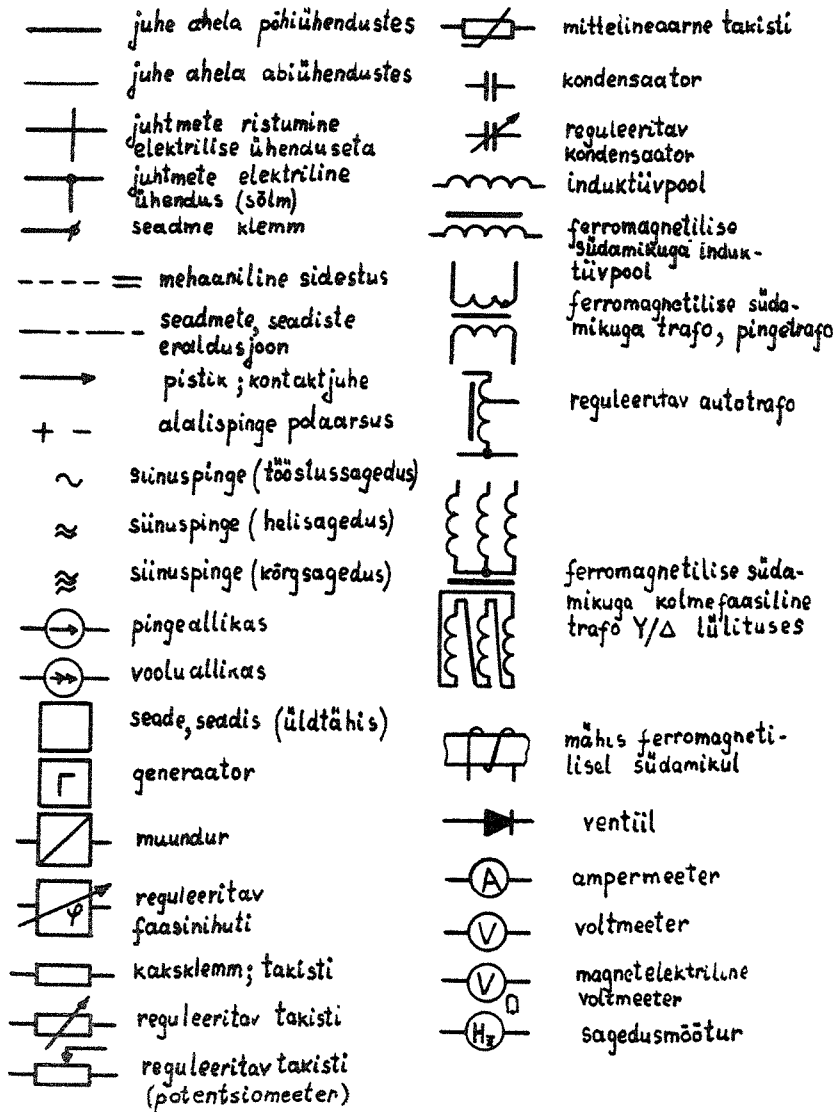 juhe ahela põhiühendustes
juhe ahela abiühendustes
juhtmete ristumine
elektrilise ühenduseta
juhtmete elektriline
ühendus (sõlm)
seadme klemm
mehaaniline sidestus
seadmete, seadiste
eraldusjoon
pistik ; kontaktjuhe
+ - alalispinge polaarsus
~ siinuspinge (tööstussagedus)
≈ siinuspinge (helisagedus)
≋ siinuspinge (kõrgsagedus)
pingeallikas
vooluallikas
seade, seadis (üldtähis)
Γ generaator
muundur
φ reguleeritav
faasinihuti
kaksklemm; takisti
reguleeritav takisti
reguleeritav takisti
(potentsiomeeter)
mittelineaarne takisti
kondensaator
reguleeritav
kondensaator
induktiivpool
ferromagnetilise
südamikuga induk-
tiivpool
ferromagnetilise süda-
mikuga trafo, pingetrafo
reguleeritav autotrafo
ferromagnetilise süda-
mikuga kolmefaasiline
trafo Y/Δ lülituses
mähis ferromagneti-
lisel südamikul
ventiil
A ampermeeter
V voltmeeter
V magnetelektriline
voltmeeter
Hz sagedusmõõtur